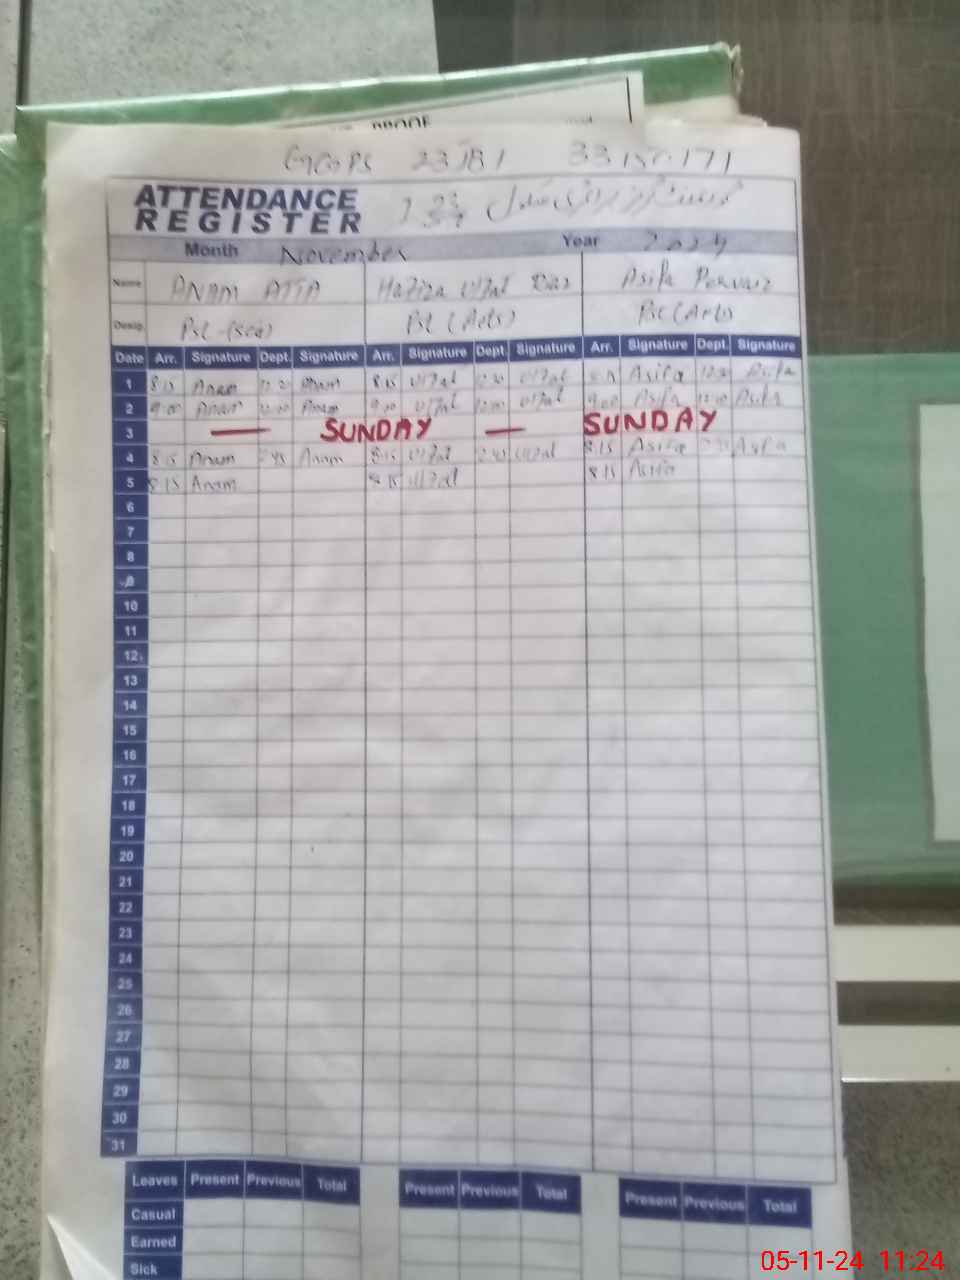 PROOF
GGPS 23 JB 1
ATTENDANCE
REGISTER
Month November Year 2024
Name ANAM ATTA Asifa Pervaiz
Desig. Pst (Arts) Pst (Arts)
Date Arr. Signature Dept. Signature Arr. Signature Dept. Signature Arr. Signature Dept. Signature
1 8:15 Anam Anam 8:15 12:30 Asifa 12:30 Asifa
2 9:00 Anam 12:00 Anam 9:00 12:00 9:00 Asifa 12:00 Asifa
3 — SUNDAY — SUNDAY
4 8:15 Anam Anam 8:15 8:15 Asifa Asifa
5 8:15 Anam 8:15 8:15 Asifa
6
7
8
9
10
11
12
13
14
15
16
17
18
19
20
21
22
23
24
25
26
27
28
29
30
31
Leaves Present Previous Total Present Previous Total Present Previous Total
Casual
Earned
Sick
05-11-24 11:24